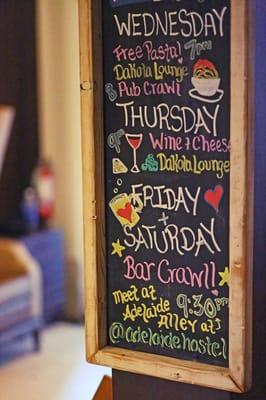 WEDNESDAY
Free Pasta! 7pm
Dakota Lounge
& Pub Crawl
THURSDAY
9pm Wine & Cheese
Dakota Lounge
FRIDAY
+
SATURDAY
Bar Crawl!
Meet at 9:30pm
Alley at
@adelaidehostel